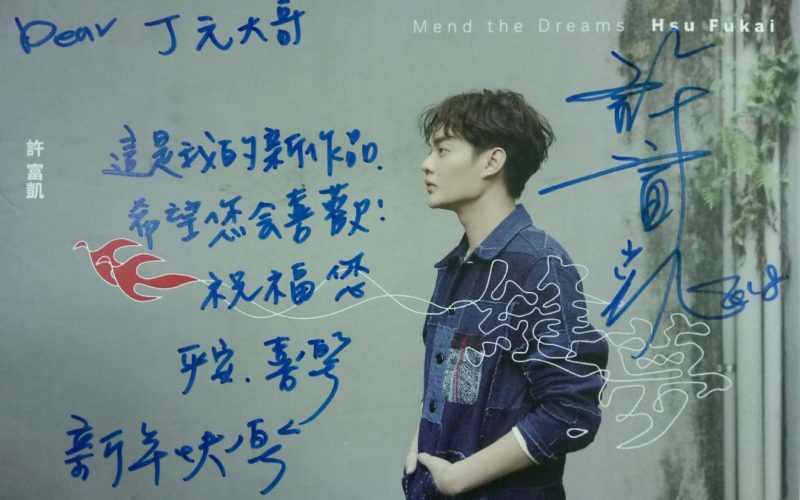 Mend the Dreams Hsu Fukai
許富凱
Dear 丁元大哥
這是我的新作品,
希望您会喜歡!
祝福您
平安、喜樂
新年快樂
許富凱
2018